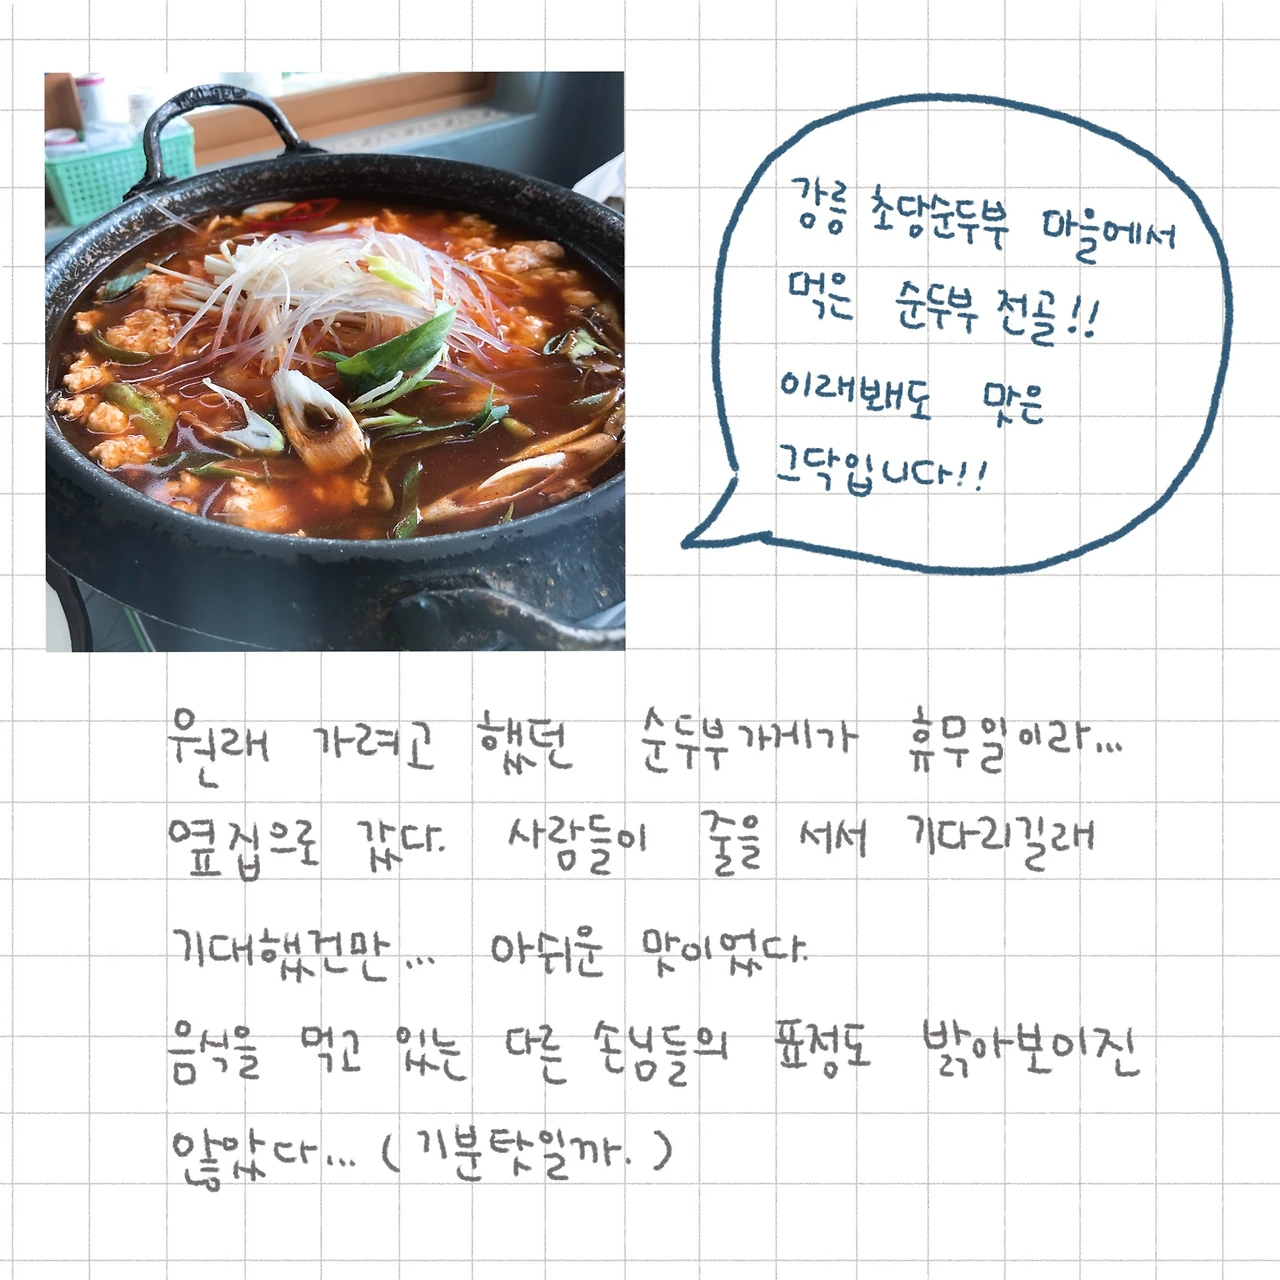 강릉 초당순두부 마을에서
먹은 순두부 전골!!
이래봬도 맛은
그닥입니다!!
원래 가려고 했던 순두부가게가 휴무일이라...
옆집으로 갔다. 사람들이 줄을 서서 기다리길래
기대했건만... 아쉬운 맛이었다.
음식을 먹고 있는 다른 손님들의 표정도 밝아보이진
않았다... (기분탓일까.)